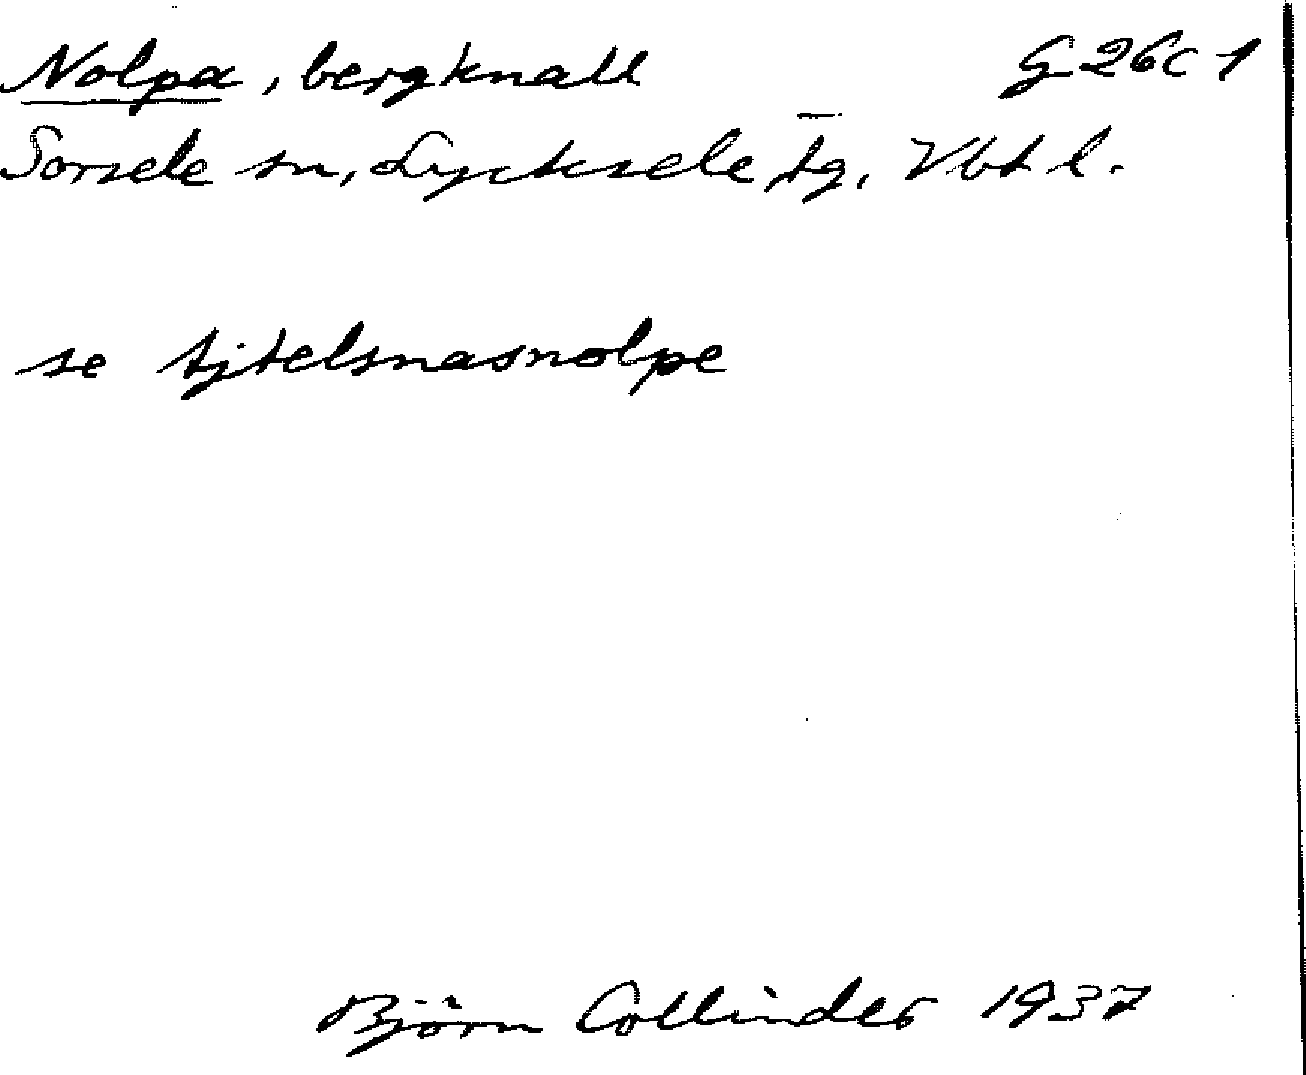 Nolpa, bergknall G 26c 1
Sorsele sn, Lycksele tg, Vbt l.
se tjtelsnasnolpe
Björn Collinder 1937